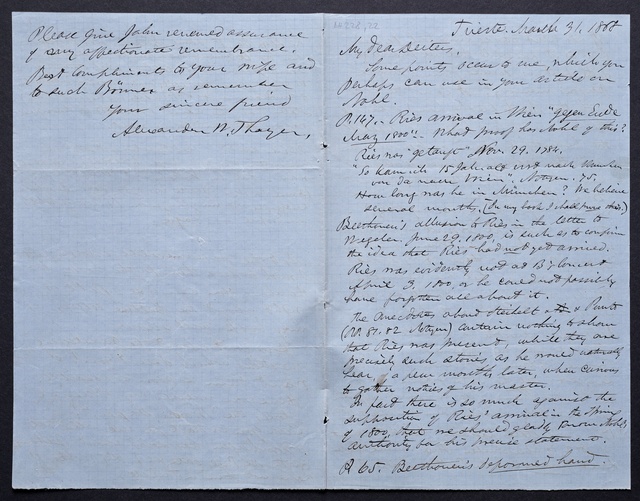 Trieste. March 31. 1868
My dear Deiters,
Some points occur to me, which you
perhaps can use in your article on
Nohl.
P. 147. Ries arrival in Wien "gegen Ende
May 1800". What proof has Nohl of this?
Ries was "getauft" Nov. 29. 1784.
"So kam ich 15 Jahr alt erst nach München
von da nach Wien". Notizen. 75.
How long was he in München? We believe
several months. (In my book I shall have this.)
Beethoven's allusion to Ries in the letter to
Wegeler, June 29. 1800, is such as to confirm
the idea that Ries had not yet arrived.
Ries was evidently not at B's Concert
April 3. 1800, or he could not possibly
have forgotten all about it.
The Anecdotes about Steibelt & Punto
(pp. 81. 82 Notizen) contain nothing to show
that Ries was present, while they are
precisely such stories as he would naturally
hear, a few months later, when curious
to gather notices of his master.
In fact there is so much against the
supposition of Ries' arrival in the Spring
of 1800, that we should gladly know Nohl's
authority for his precise statement.
P 65. Beethoven's deformed hand.
Please give John renewed assurance
of my affectionate remembrance.
Best compliments to your wife and
to such Bonner as remember
your sincere friend
Alexander W. Thayer,